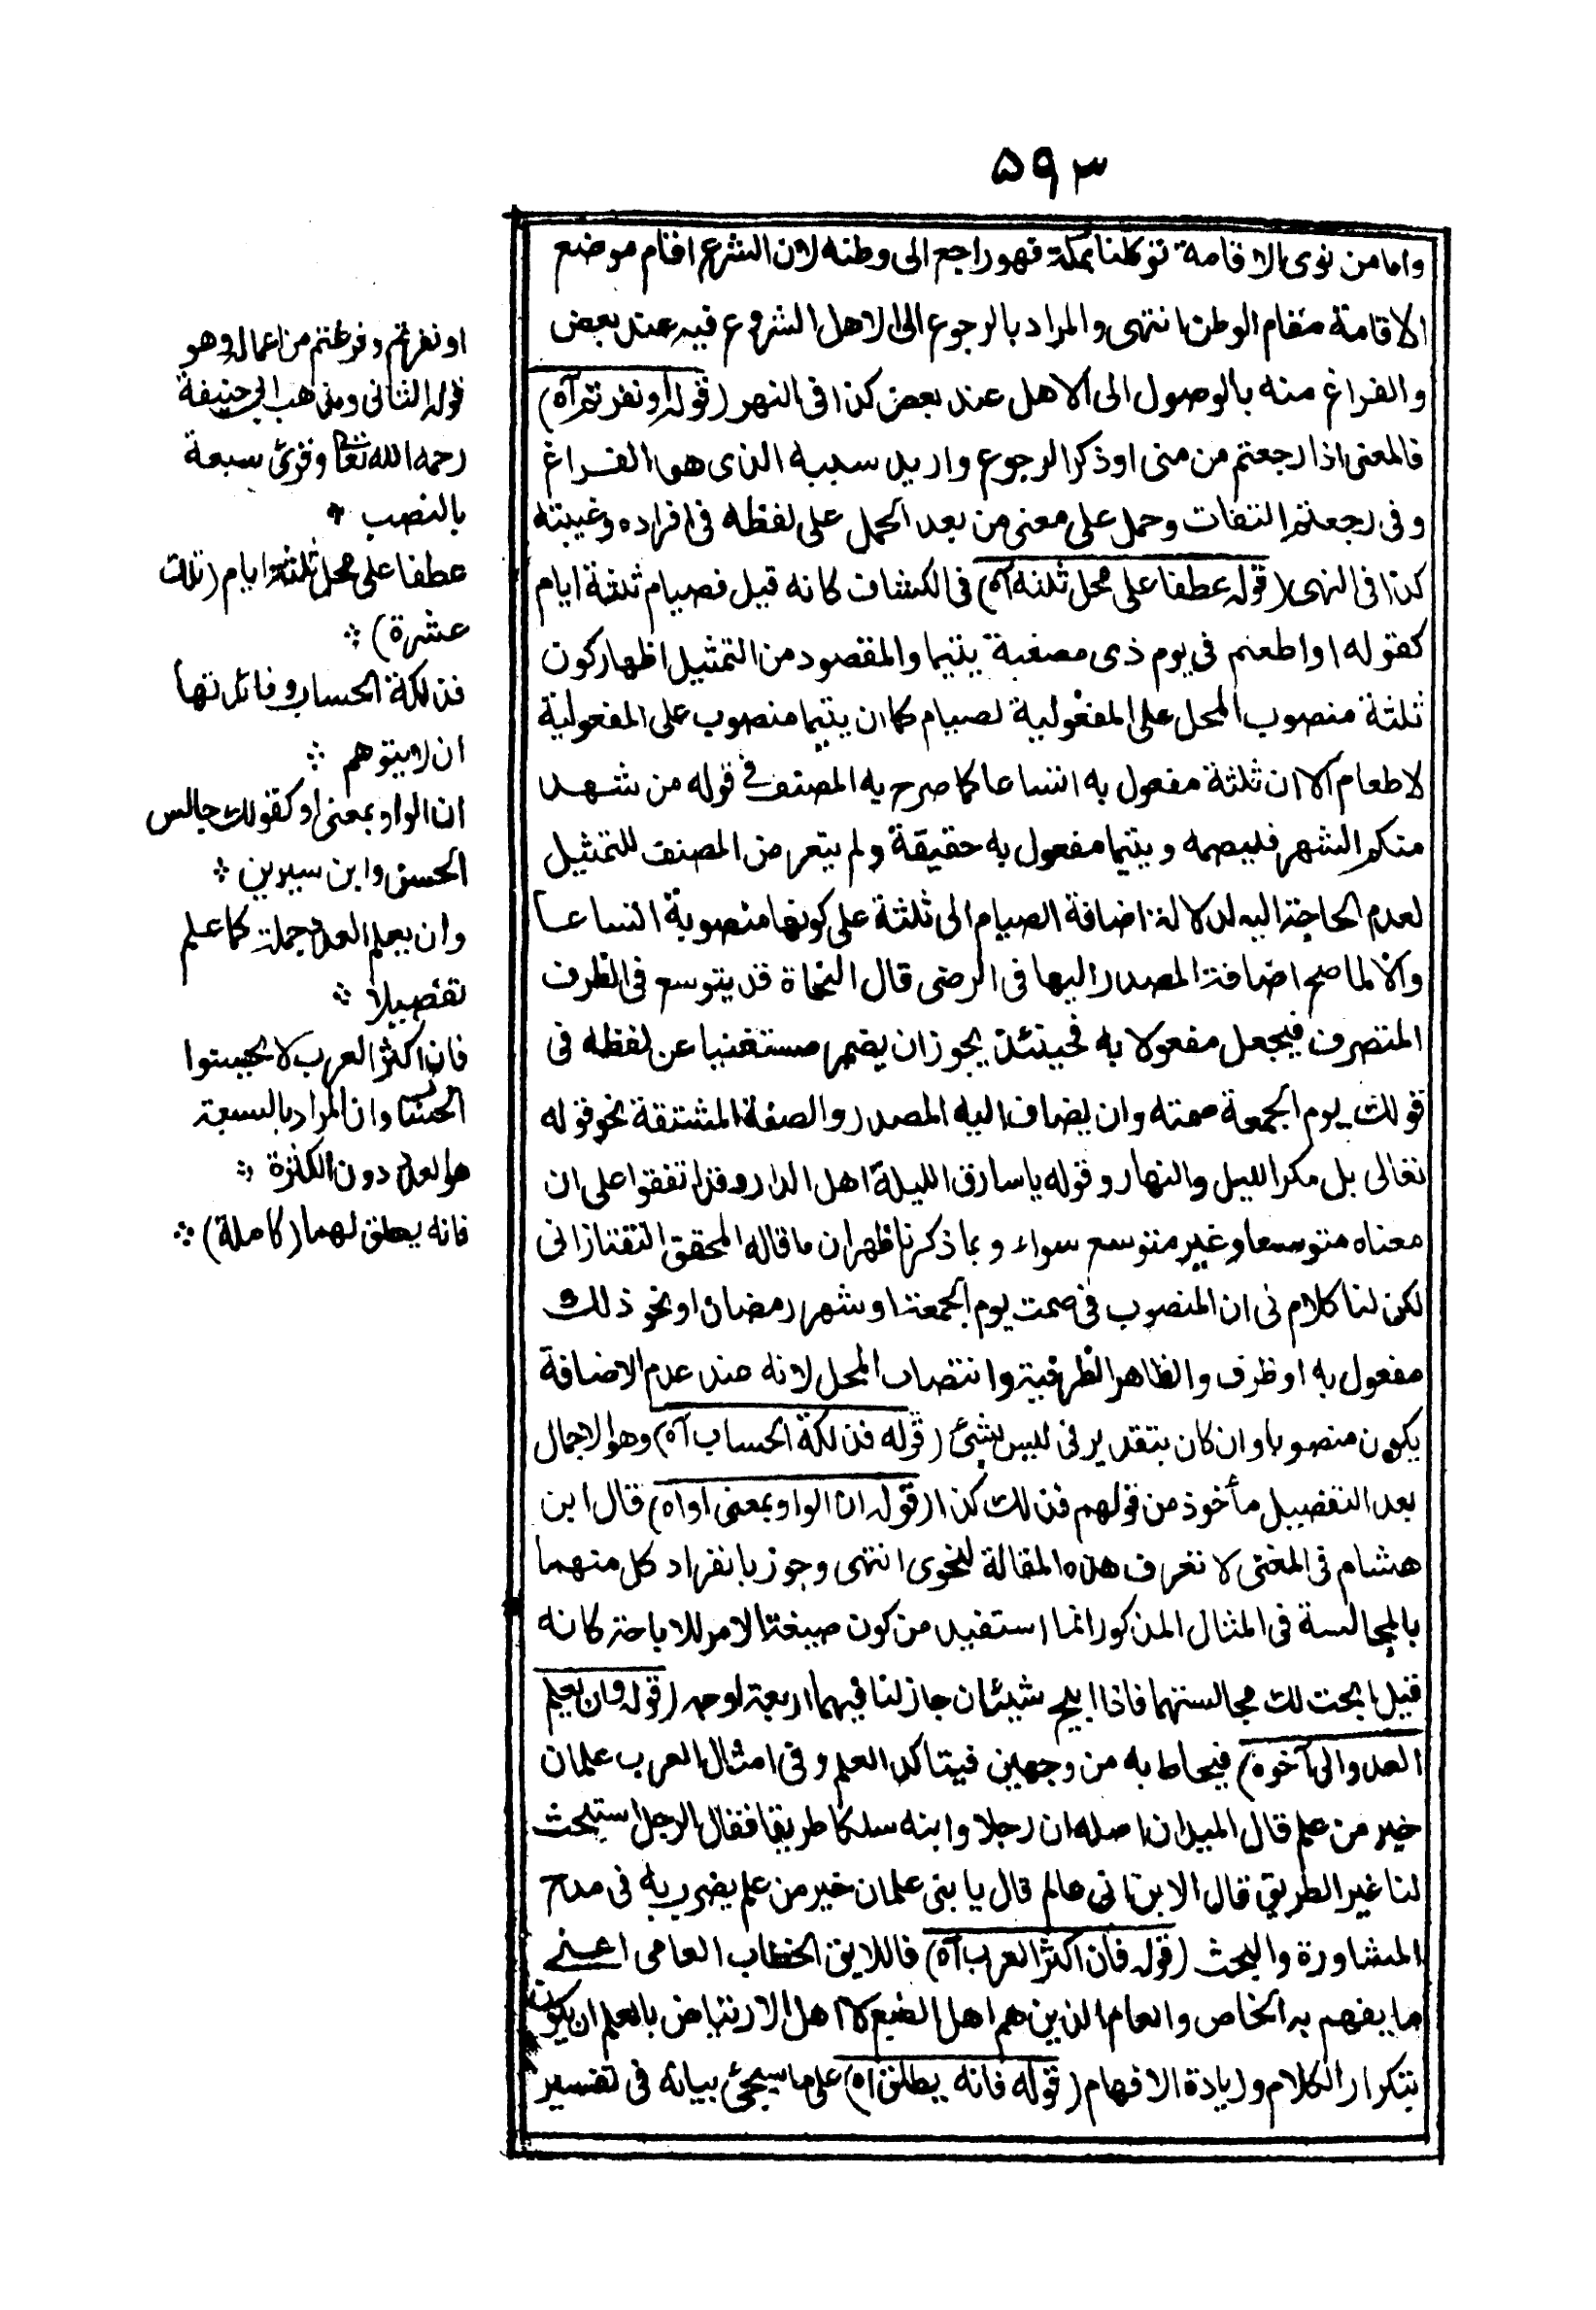 ۵۹۳
واما من نوى الاقامة توطنا بمكة فهو راجع الى وطنه لان الشرع اقام موضع
الاقامة مقام الوطن انتهى والمراد بالرجوع الى الاهل الشروع فيه عند بعض
والفراغ منه بالوصول الى الاهل عند بعض كذا فى النهر (قوله او نفرتم آه)
فالمعنى اذا رجعتم من منى او ذكر الرجوع واريد سببه الذى هو الفراغ
وفى رجعتم التفات وحمل على معنى من بعد الحمل على لفظه فى افراده وغيبته
كذا فى النهر (قوله عطفا على محل ثلثه آه) فى الكشاف كانه قيل فصيام ثلثة ايام
كقوله او اطعم فى يوم ذى مسغبة يتيما والمقصود من التمثيل اظهار كون
ثلثة منصوب المحل على المفعولية لصيام كما ان يتيما منصوب على المفعولية
لاطعام الا ان ثلثة مفعول به اتساعا كما صرح به المصنف فى قوله من شهد
منكم الشهر فليصمه ويتيما مفعول به حقيقة ولم يتعرض المصنف للتمثيل
لعدم الحاجة اليه لدلالة اضافة الصيام الى ثلثة على كونها منصوبة اتساعا
والا لما صح اضافة المصدر اليها فى الرضى قال النحاة قد يتوسع فى الظرف
المتصرف فيجعل مفعولا به فحينئذ يجوز ان يضمر مستغنيا عن لفظه فى
قولك يوم الجمعة صمته وان يضاف اليه المصدر والصفة المشتقة نحو قوله
تعالى بل مكر الليل والنهار وقوله يا سارق الليلة اهل الدار وقد اتفقوا على ان
معناه متوسعا وغير متوسع سواء وبما ذكرنا ظهر ان ما قاله المحقق التفتازانى
لكن لنا كلام فى ان المنصوب فى صمت يوم الجمعة او شهر رمضان او نحو ذلك
مفعول به او ظرف والظاهر الظرفية وانتصاب المحل لانه عند عدم الاضافة
يكون منصوبا وان كان بتقدير فى ليس بشئ (قوله فذلكة الحساب آه) وهو الاجمال
بعد التفصيل مأخوذ من قولهم فذلك كذا (قوله ان الواو بمعنى او اه) قال ابن
هشام فى المغنى لا تعرف هذه المقالة لنحوى انتهى وجوز بانفراد كل منهما
بالمجالسة فى المثال المذكور انما استفيد من كون صيغة الامر للاباحة كانه
قيل ابحت لك مجالستهما فاذا ابيح شيئان جاز لنا فيهما اربعة اوجه (قوله وان يعلم
العدد الى آخره) فيحاط به من وجهين فيتاكد العلم وفى امثال العرب علمان
خير من علم قال الميدانى اصله ان رجلا وابنه سلكا طريقا فقال الرجل استبحث
لنا غير الطريق قال الابن انى عالم قال يا بنى علمان خير من علم يضرب به فى مدح
المشاورة والبحث (قوله فان اكثر العرب آه) فاللايق الخطاب العامى اعنى
ما يفهم به الخاص والعام الذين هم اهل الطبع لا اهل الارتياض بالعلم ان يكون
بتكرار الكلام وزيادة الافهام (قوله فانه يطلق اه) على ما سيجئ بيانه فى تفسير
او نفرتم وفرغتم من اعماله وهو
قوله الثانى ومذهب ابى حنيفة
رحمه الله تعا وقرئ سبعة
بالنصب
عطفا على محل ثلثة ايام (تلك
عشرة)
فذلكة الحساب وفائدتها
ان لا يتوهم
ان الواو بمعنى او كقولك جالس
الحسن وابن سيرين
وان يعلم العدد جملة كما علم
تفصيلا
فان اكثر العرب لا يحسنوا
الحساب وان المراد بالسبعة
هو العدد دون الكثرة
فانه يطلق لهما (كاملة)